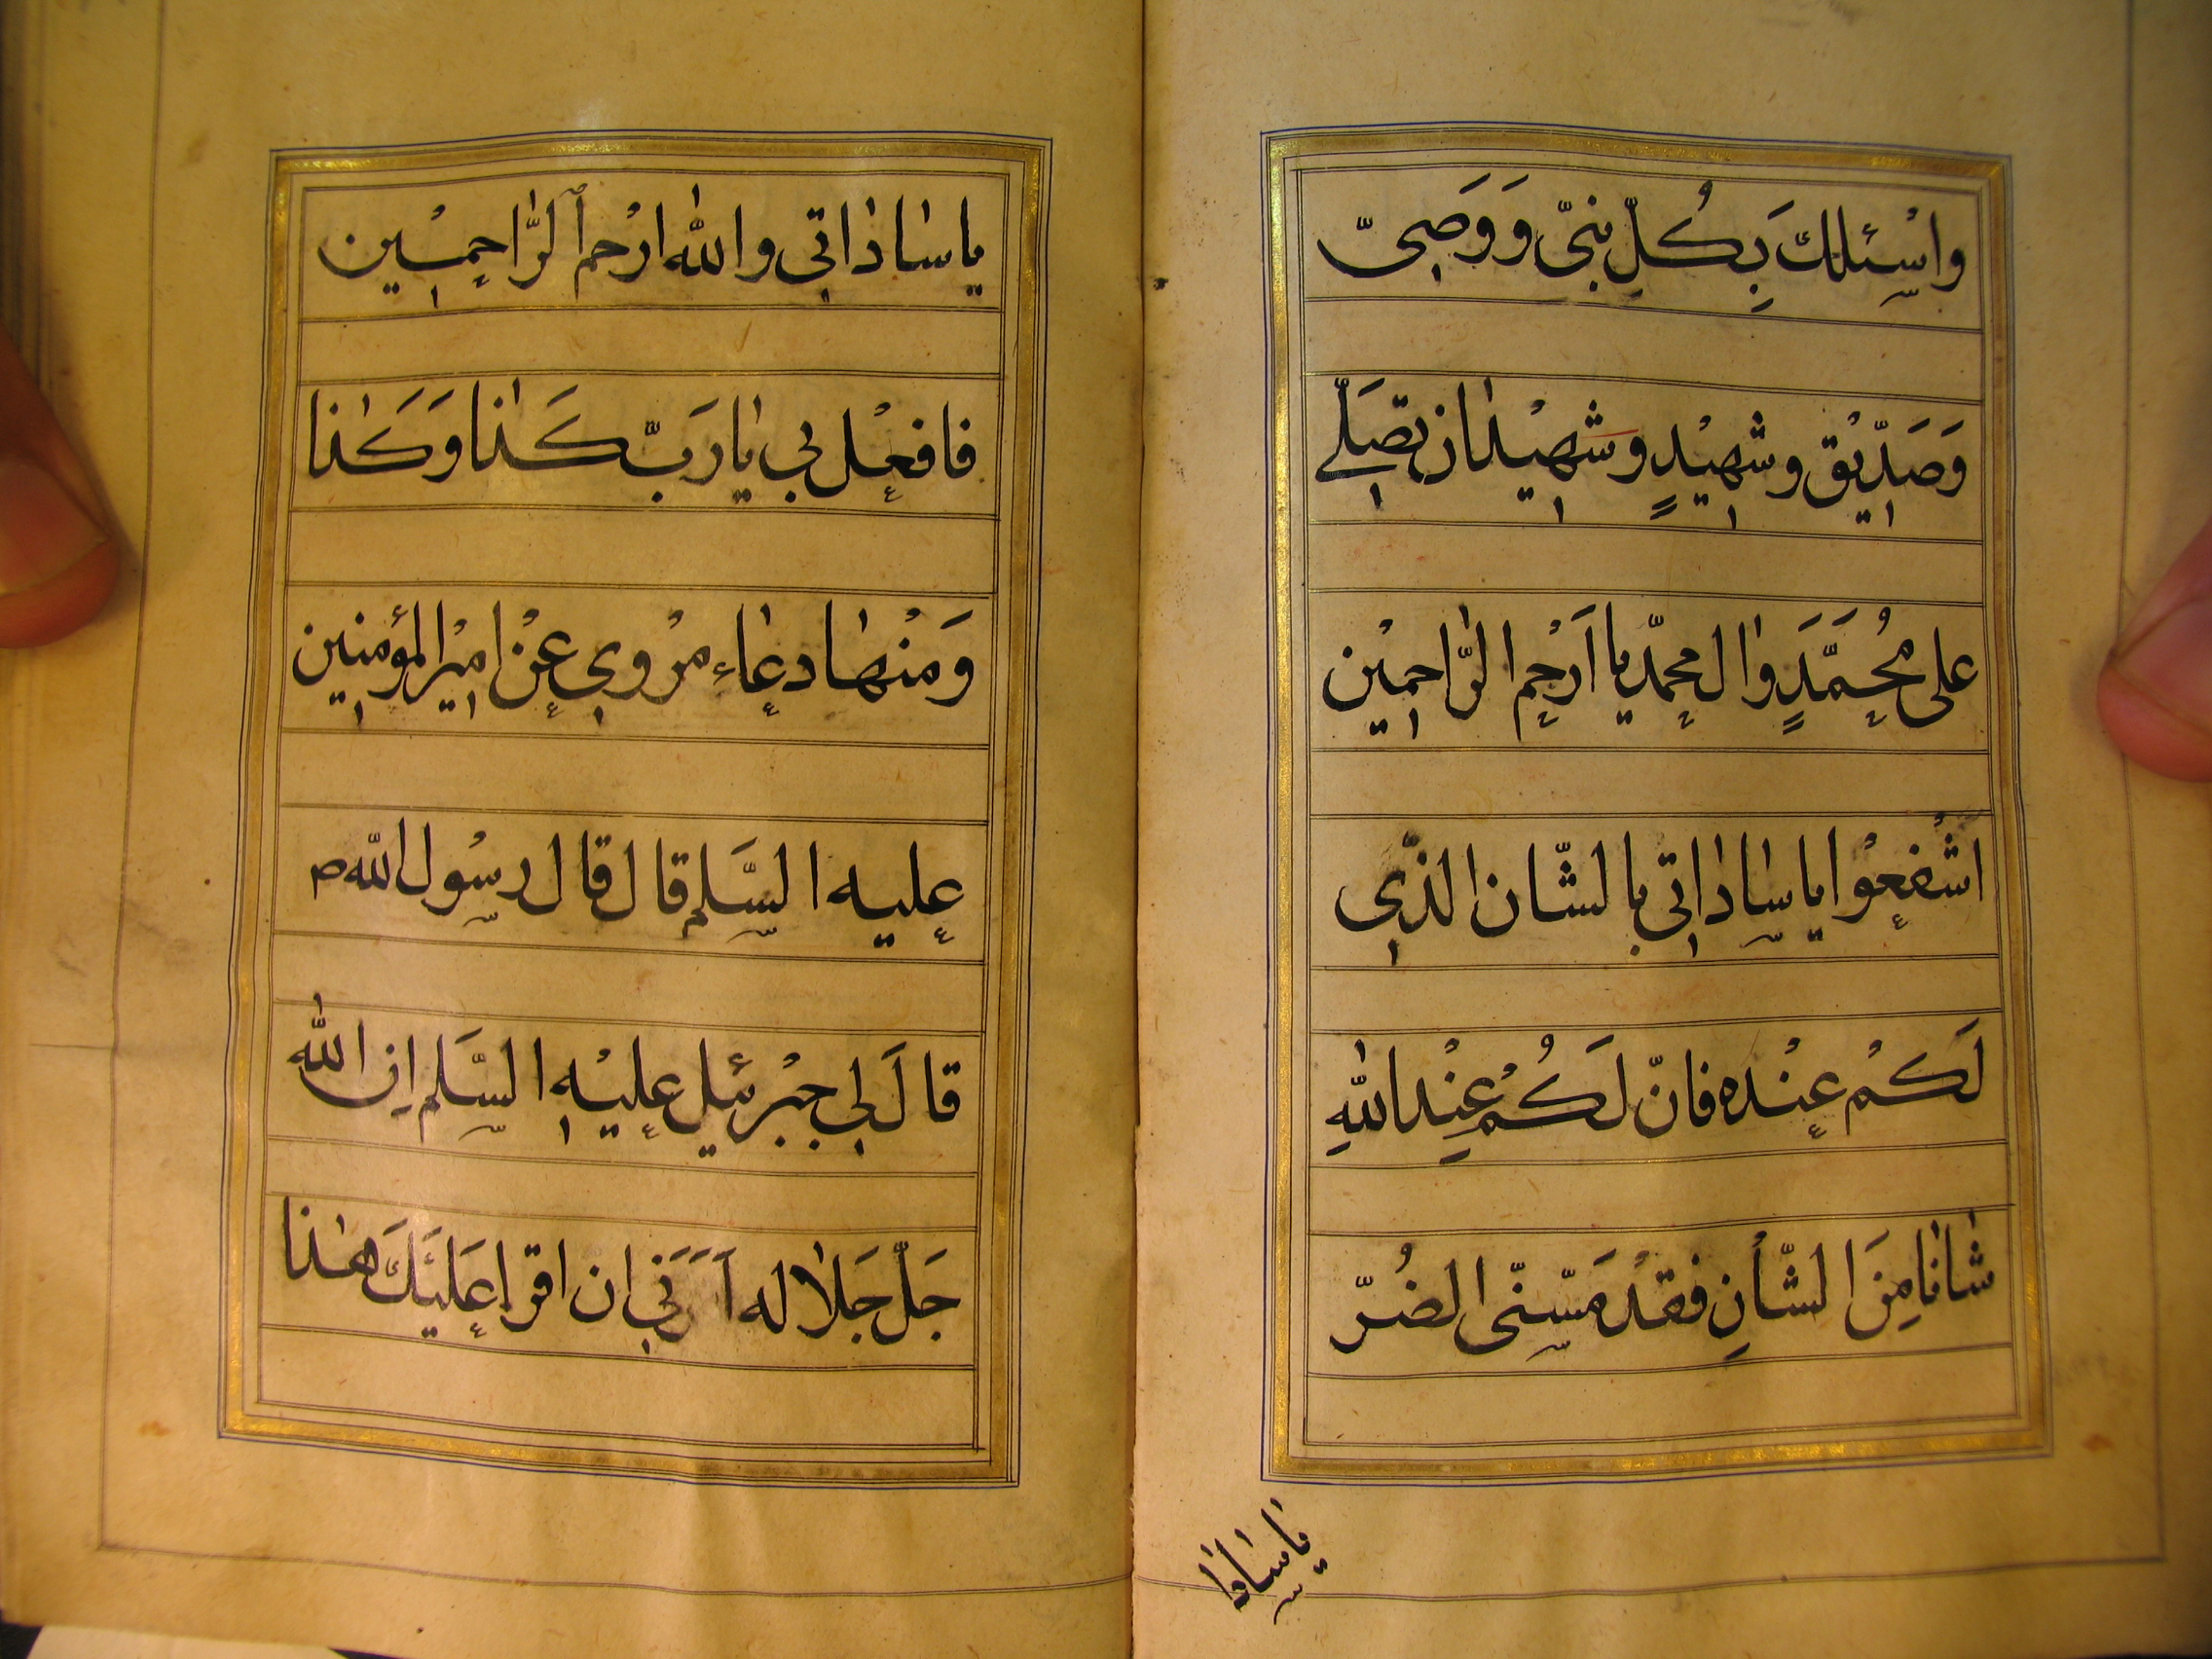 واسْئلكَ بِكُلِّ نبىّ وَوَصىّ
وَصَدّيْق وشهيْدٍ وشهيْدان تصَلّے
على محُمَّدٍ وال محمّد يا اَرْحم الرّاحميْن
اشْفعوْا يا ساداتى بالشّان الذّى
لَكمْ عنْده فانّ لَكُمْ عنْدِ اللهِ
شانا مِنَ الشّأنِ فقدْ مَسّنى الضُرّ
ياسادا
ياساداتى والله ارْحم الرّاحميْن
فافعْل بى يارَبّ كَذا وَكَذا
وَمنْها دعاء مرْوى عنْ اميْر المؤمنين
عليه السَّلم قال قال رسوْل اللّه ص
قالَ لى جبْرئيل عليْه السَّلم اِن الله
جَلّ جَلاله اَمَرَنى ان اقرا عَليَكَ هذا